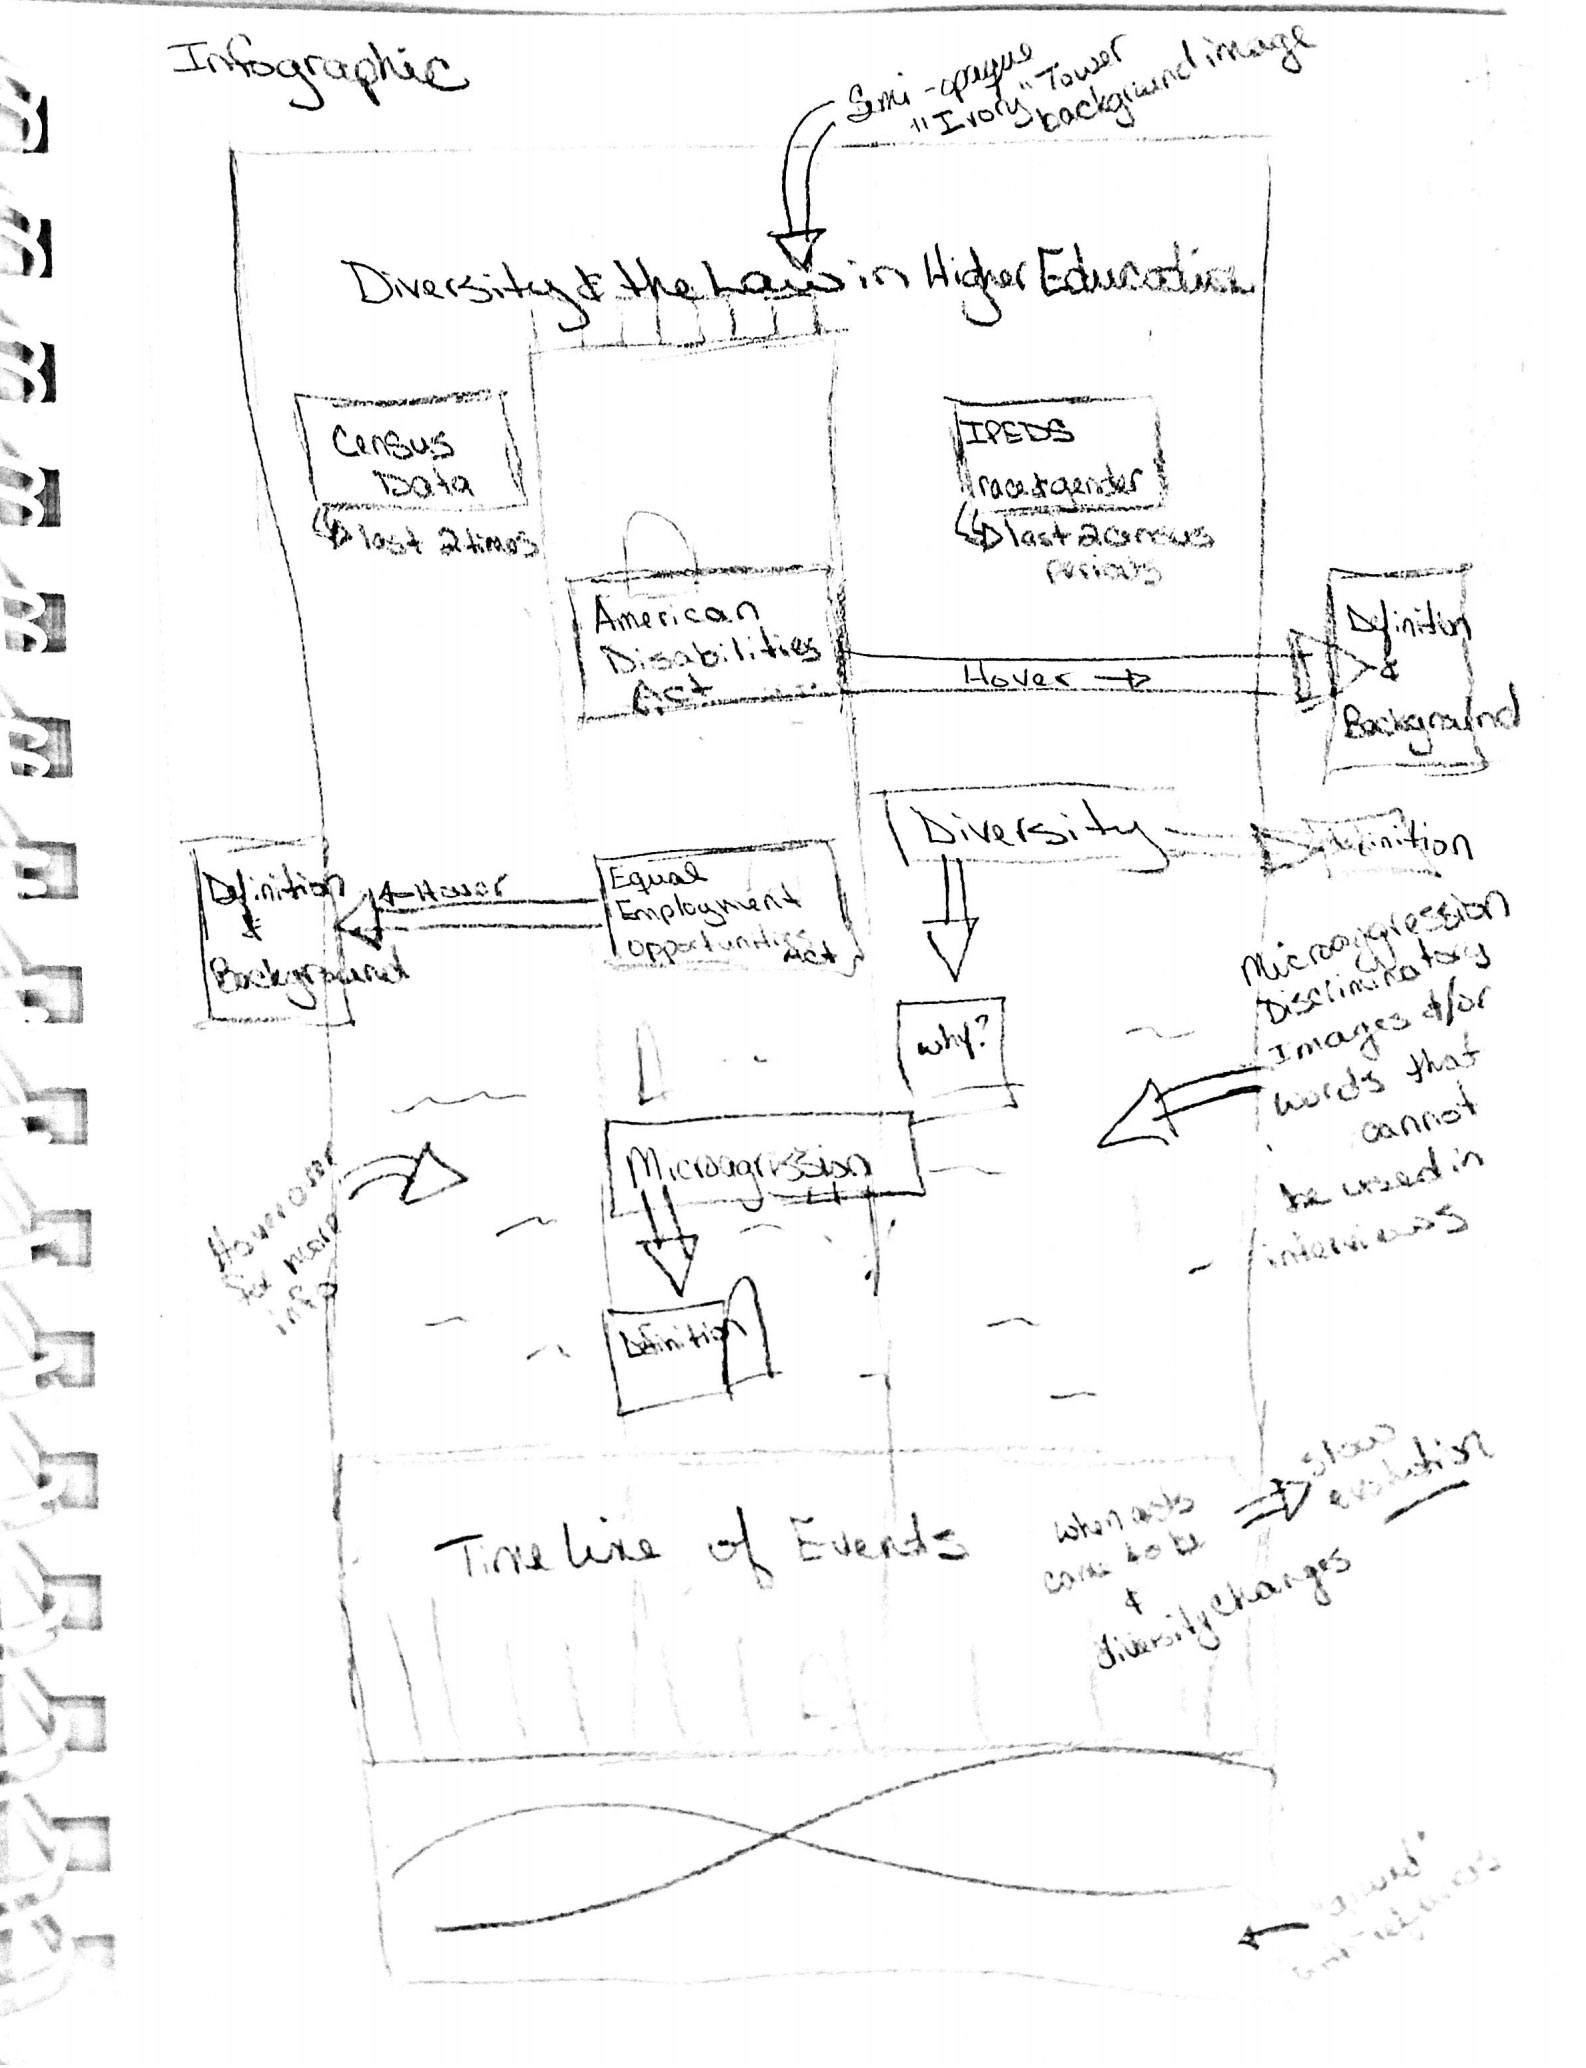 Infographic
Semi-opaque
"Ivory" Tower
background image
Diversity & the Law in Higher Education
Census
Data
last 2 times
IPEDS
race & gender
last 2 census
periods
American
Disabilities
Act
Hover →
Definition
&
Background
Diversity
Definition
Equal
Employment
opportunities
Act
←Hover
Definition
&
Background
why?
Microaggression
Discriminatory
Images &/or
words that
cannot
be used in
interviews
Microagression
Hover over
for more
info
Definition
Time line of Events
when acts
came to be
&
diversity changes
slow
evolution